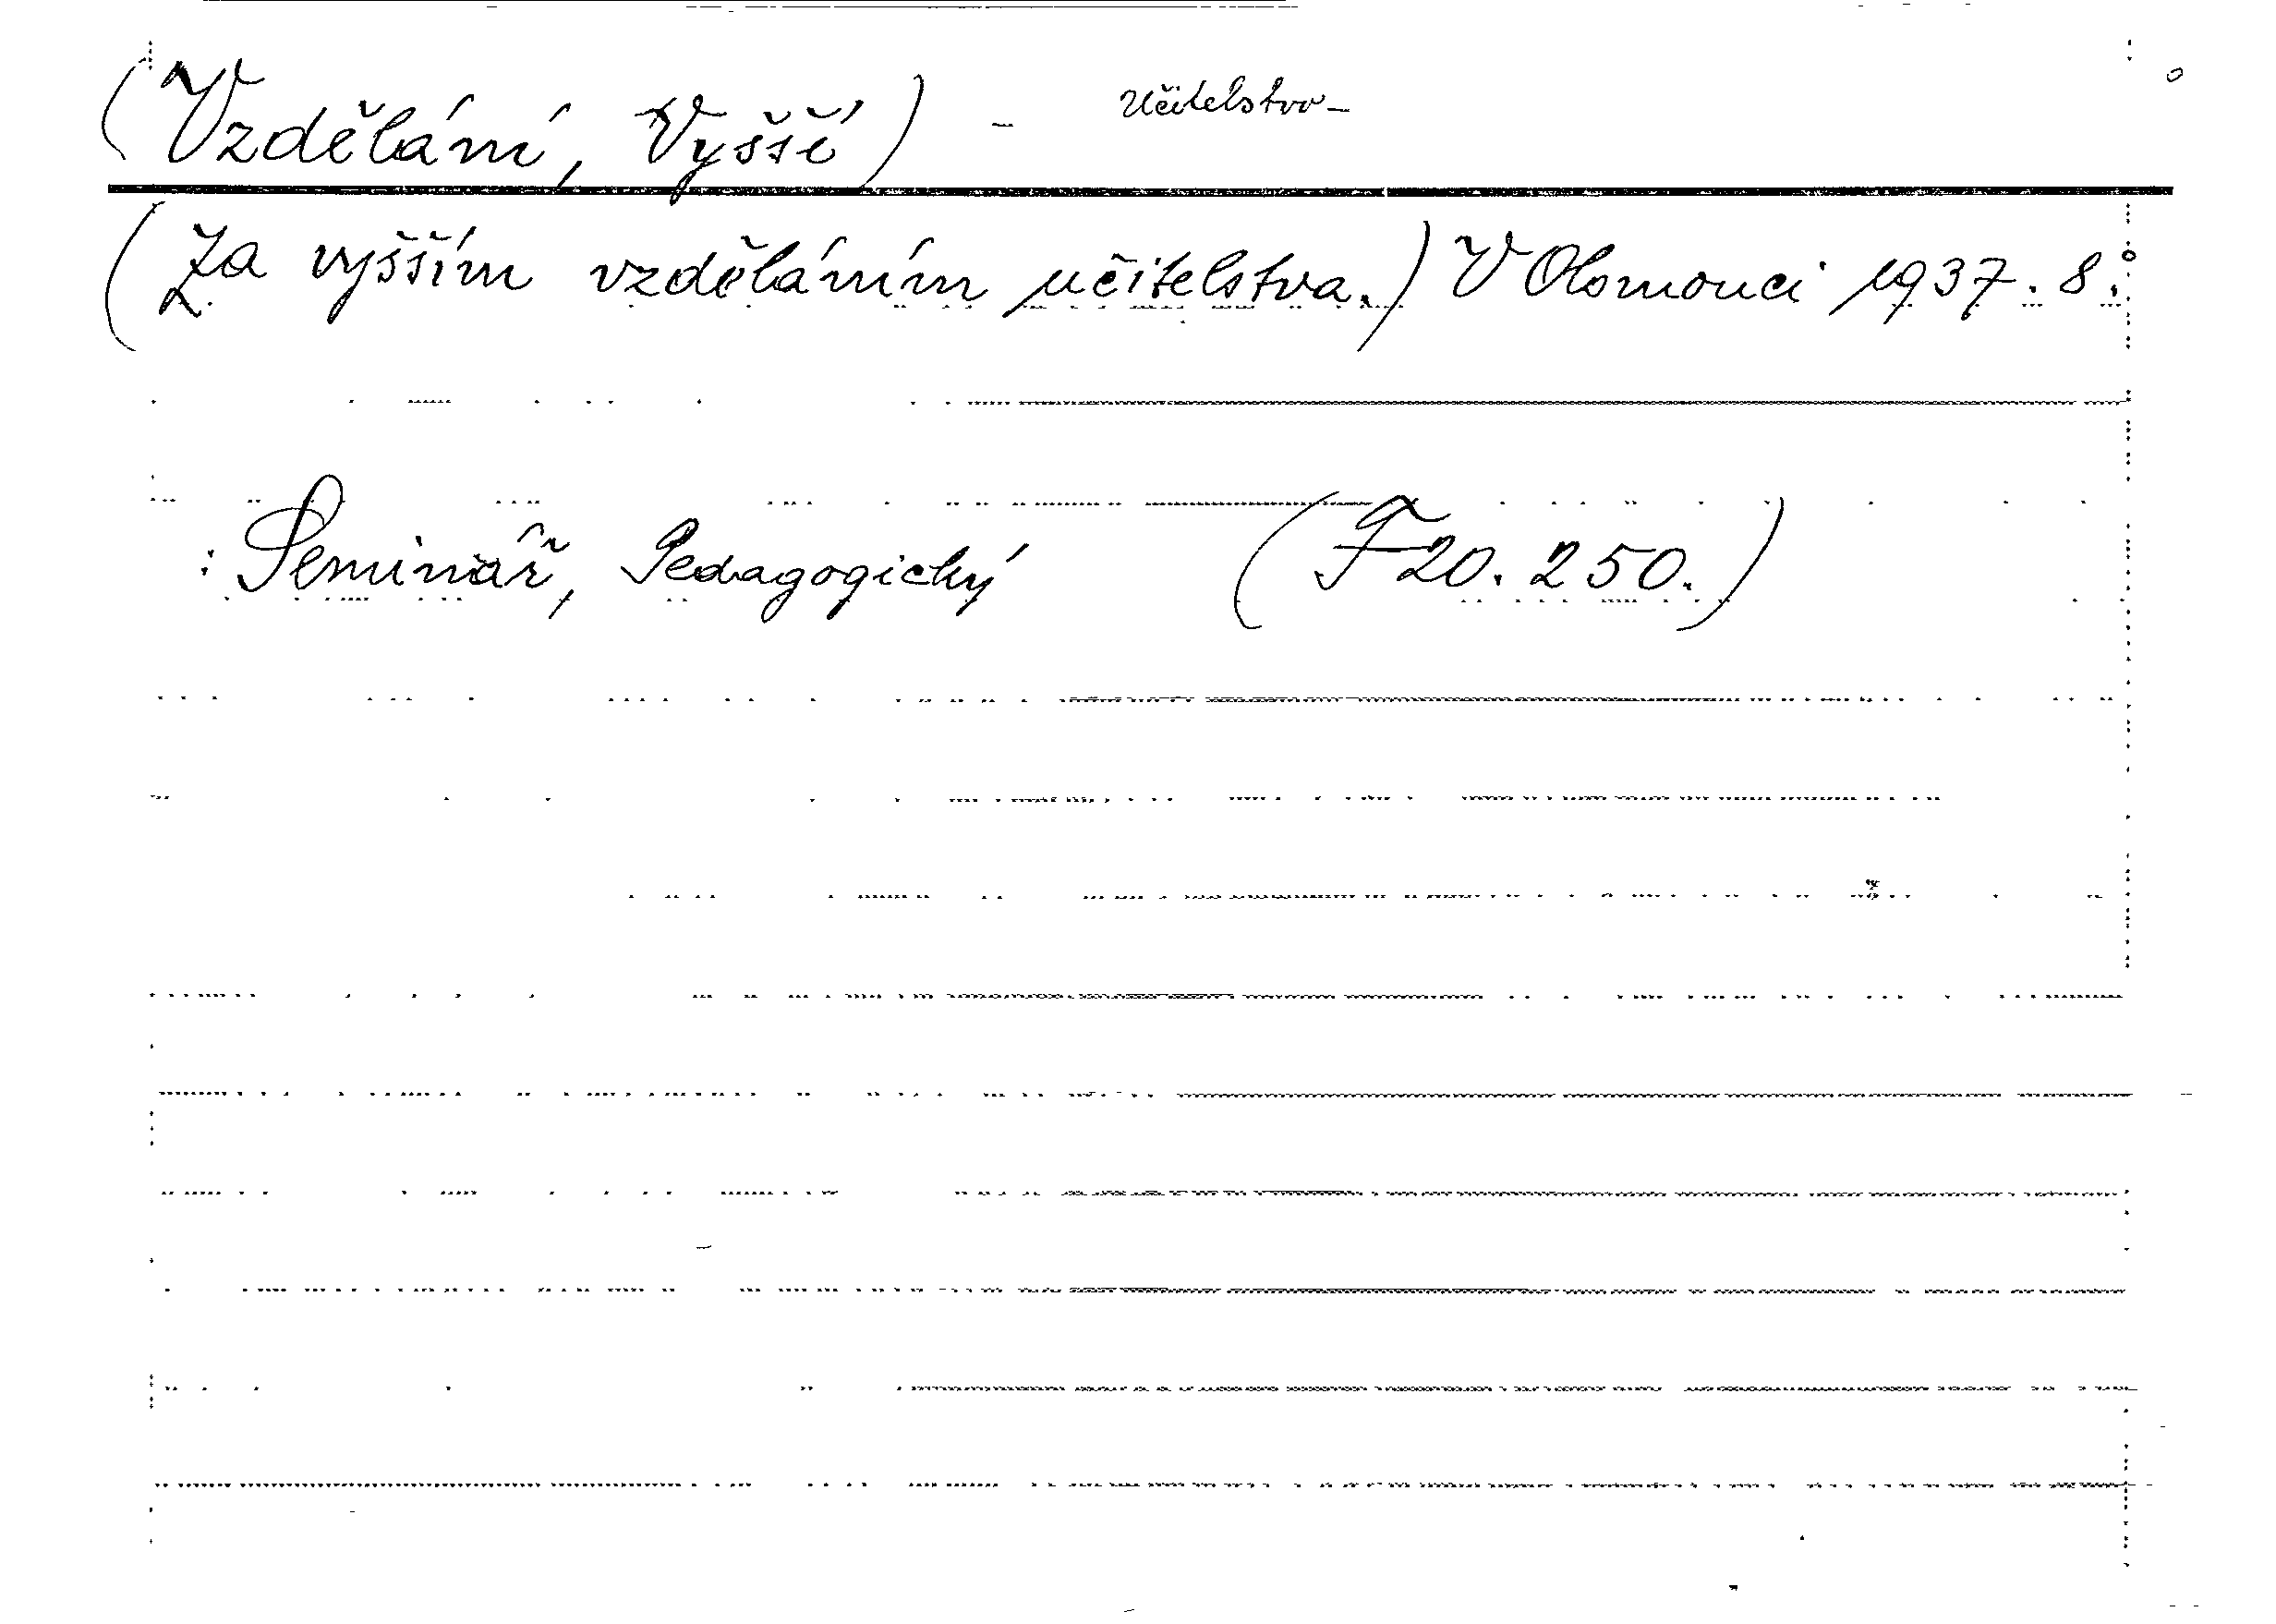 (Vzdělání, Vyšší) - Učitelstvo -
(Za vyšším vzděláním učitelstva.) V Olomouci 1937. 8.°
: Seminář, Pedagogický (F 20.250.)